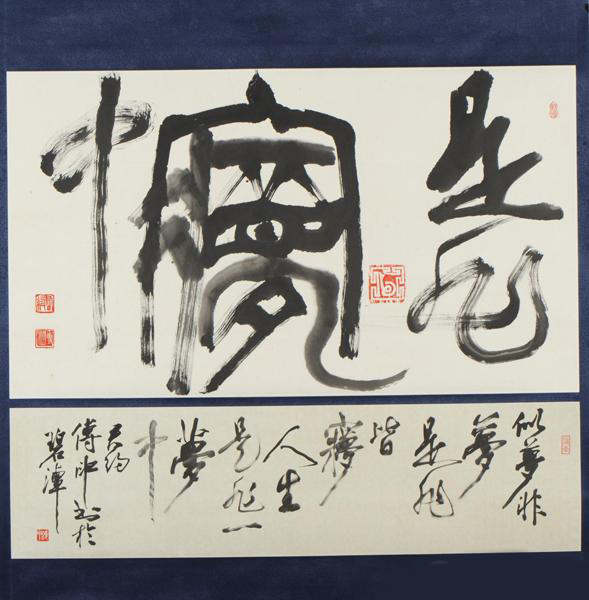 是非
夢
中
似夢非
夢
是非
皆
夢
人生
是非一
夢
中
君約
傅申書於
碧潭